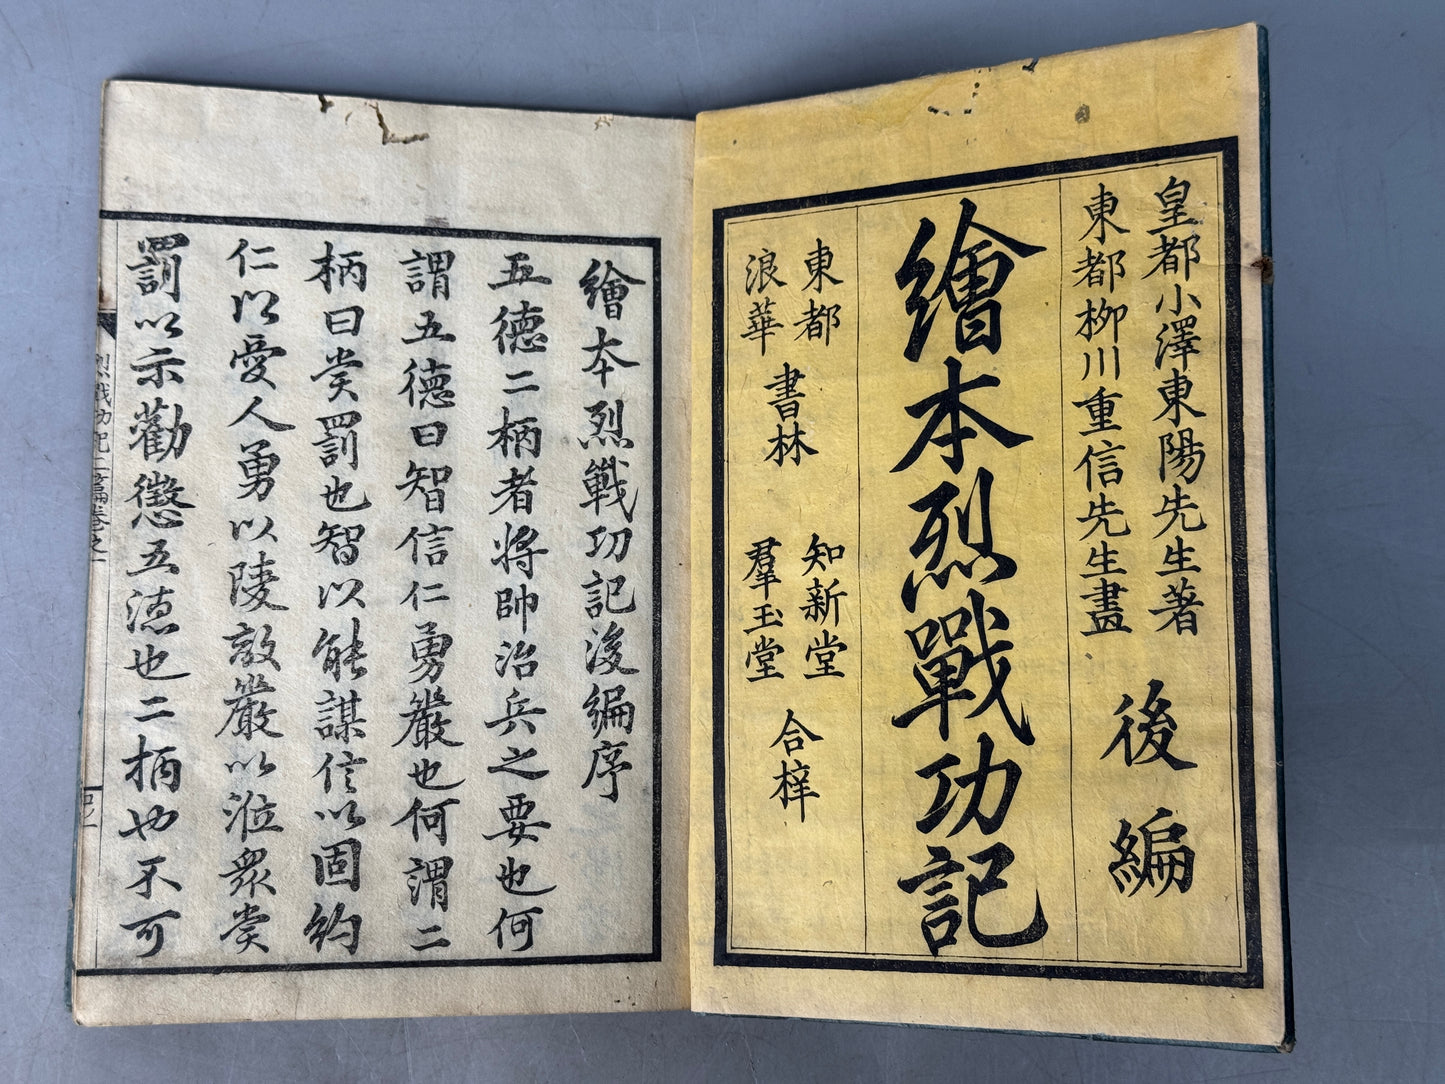 皇都小澤東陽先生著
東都柳川重信先生畫
後編
繪本烈戰功記
東都
浪華
書林
知新堂
羣玉堂
合梓
繪本烈戰功記後編序
五德二柄者將帥治兵之要也何
謂五德曰智信仁勇嚴也何謂二
柄曰赏罰也智以能謀信以固約
仁以愛人勇以陵敵嚴以涖衆赏
罰以示勸懲五德也二柄也不可
烈戰功記二編卷之一